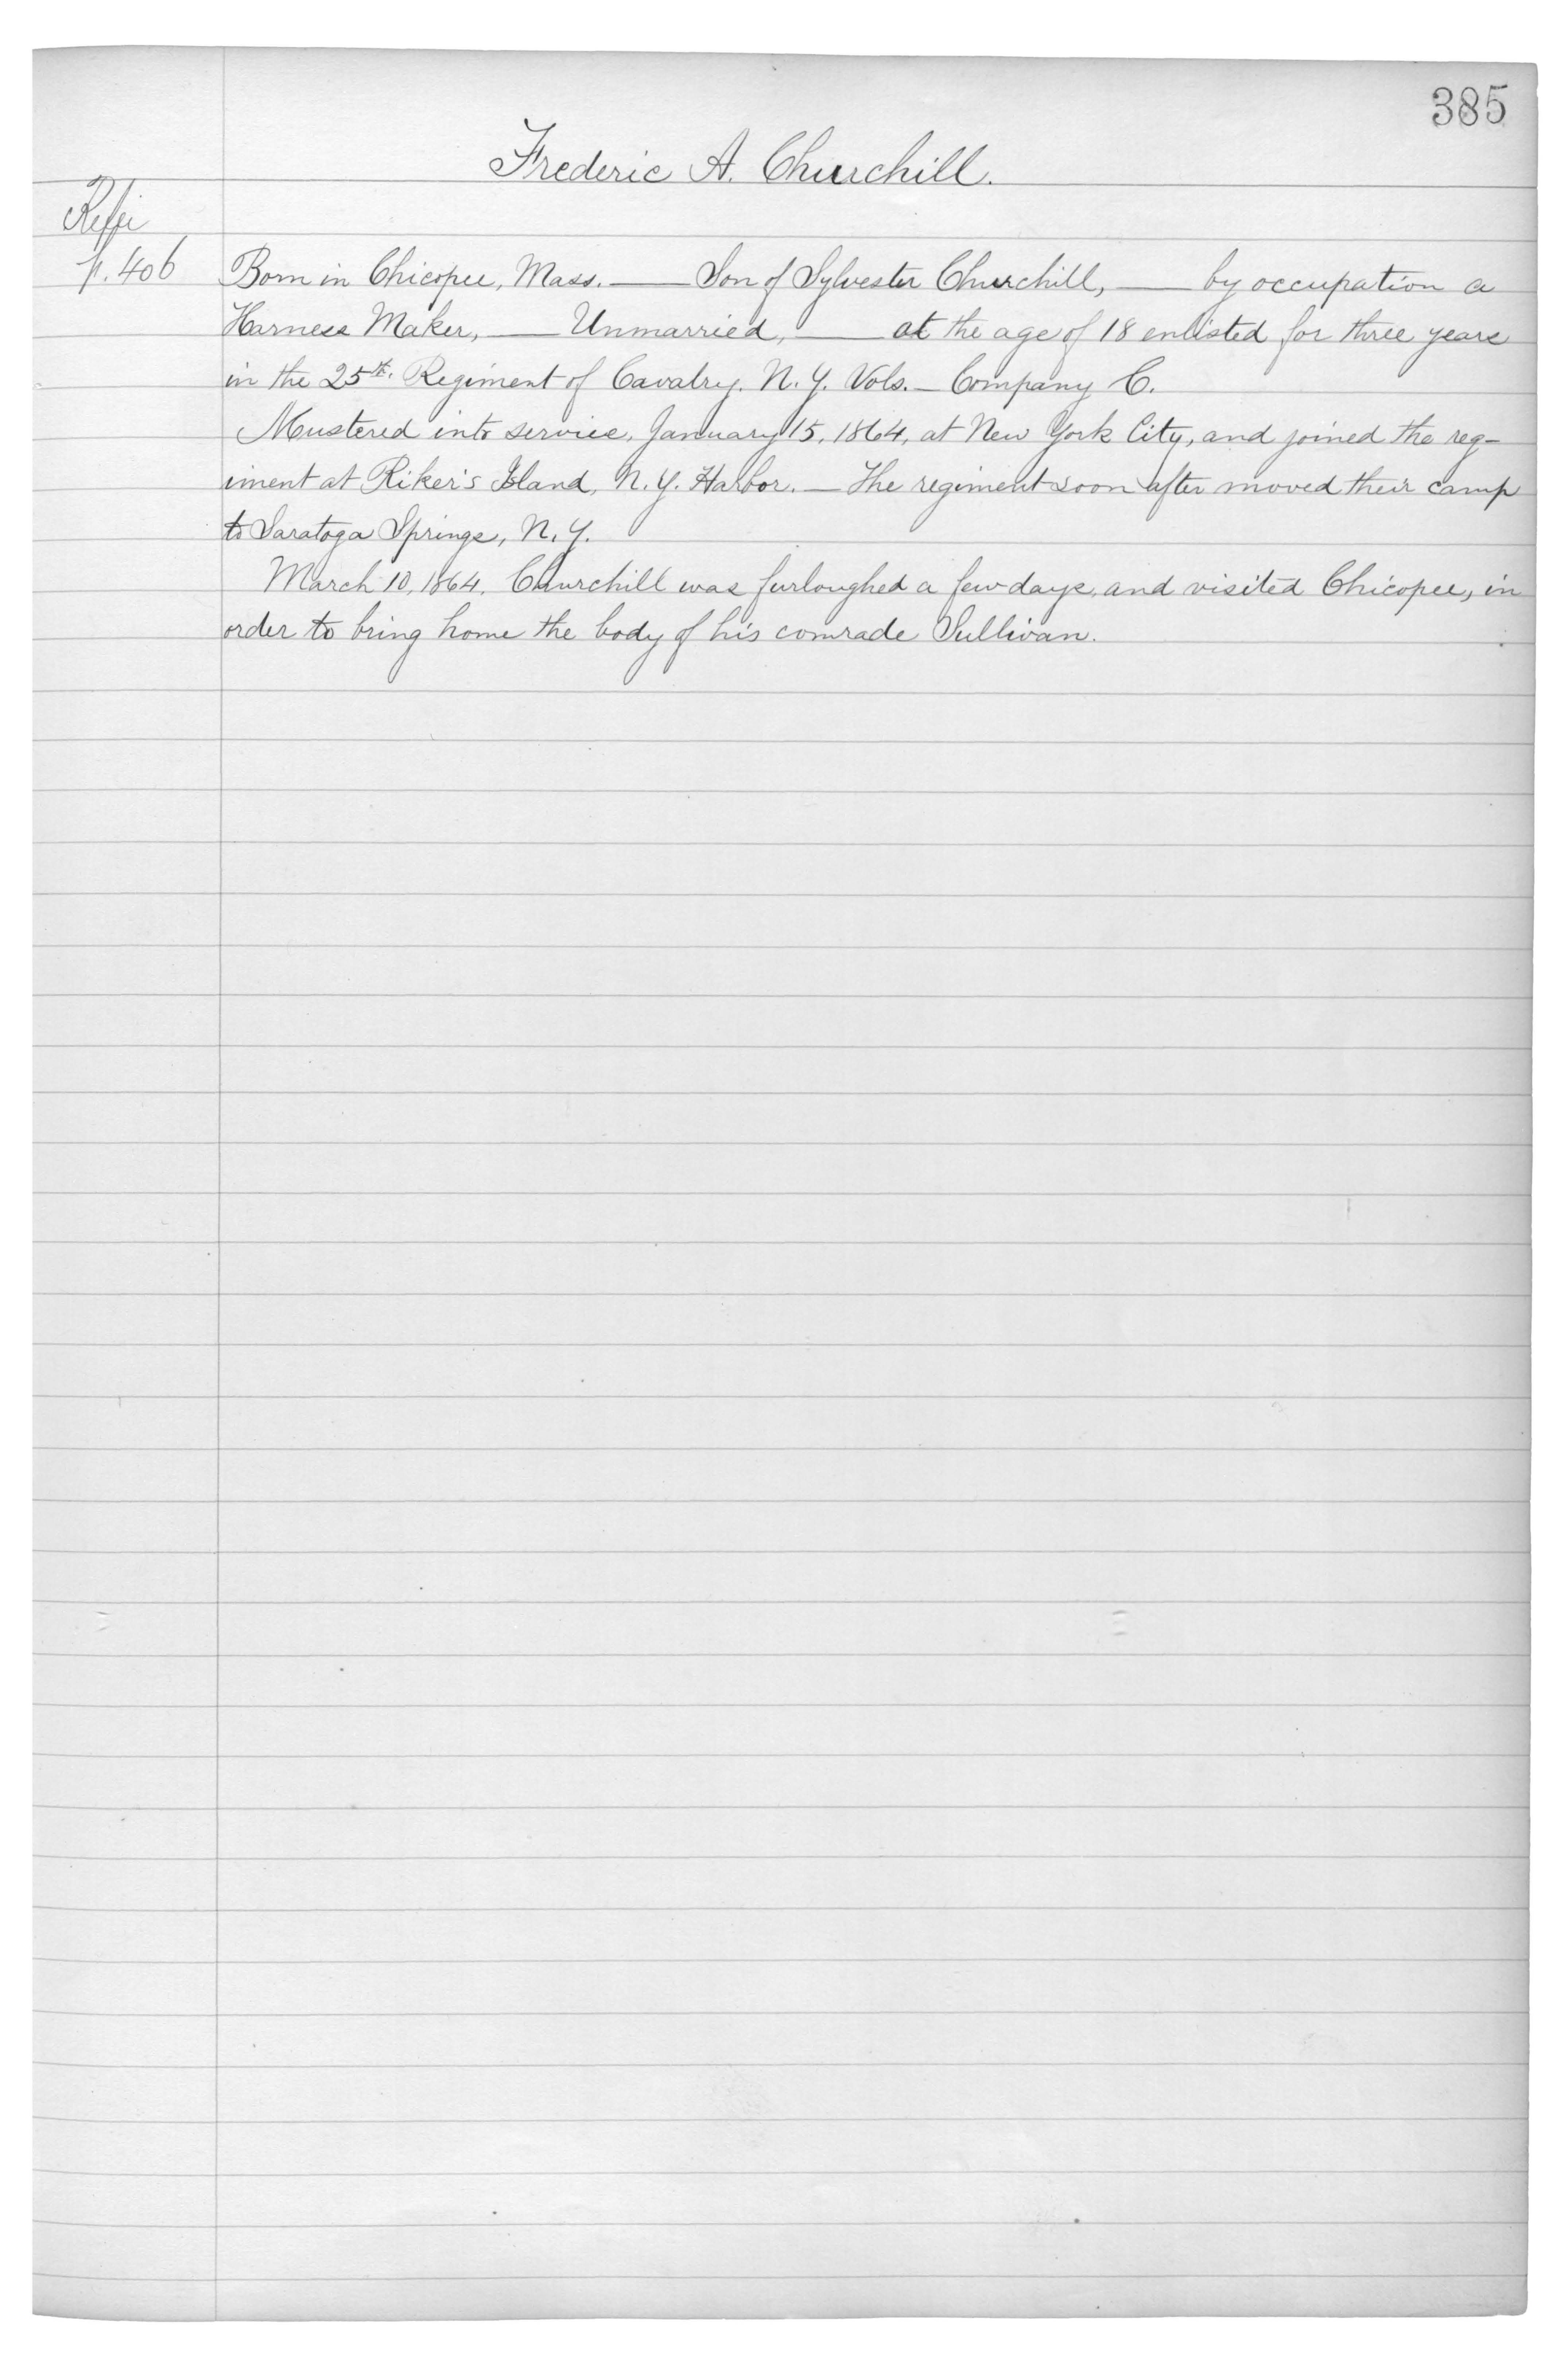 385
Frederic A. Churchill.
p. 406
Born in Chicopee, Mass. — Son of Sylvester Churchill, — by occupation a
Harness Maker, — Unmarried, — at the age of 18 enlisted for three years
in the 25th. Regiment of Cavalry. N. Y. Vols. — Company C.
Mustered into service, January 15, 1864, at New York City, and joined the reg-
iment at Riker's Island, N. Y. Harbor. — The regiment soon after moved their camp
to Saratoga Springs, N. Y.
March 10, 1864. Churchill was furloughed a few days, and visited Chicopee, in
order to bring home the body of his comrade Sullivan.